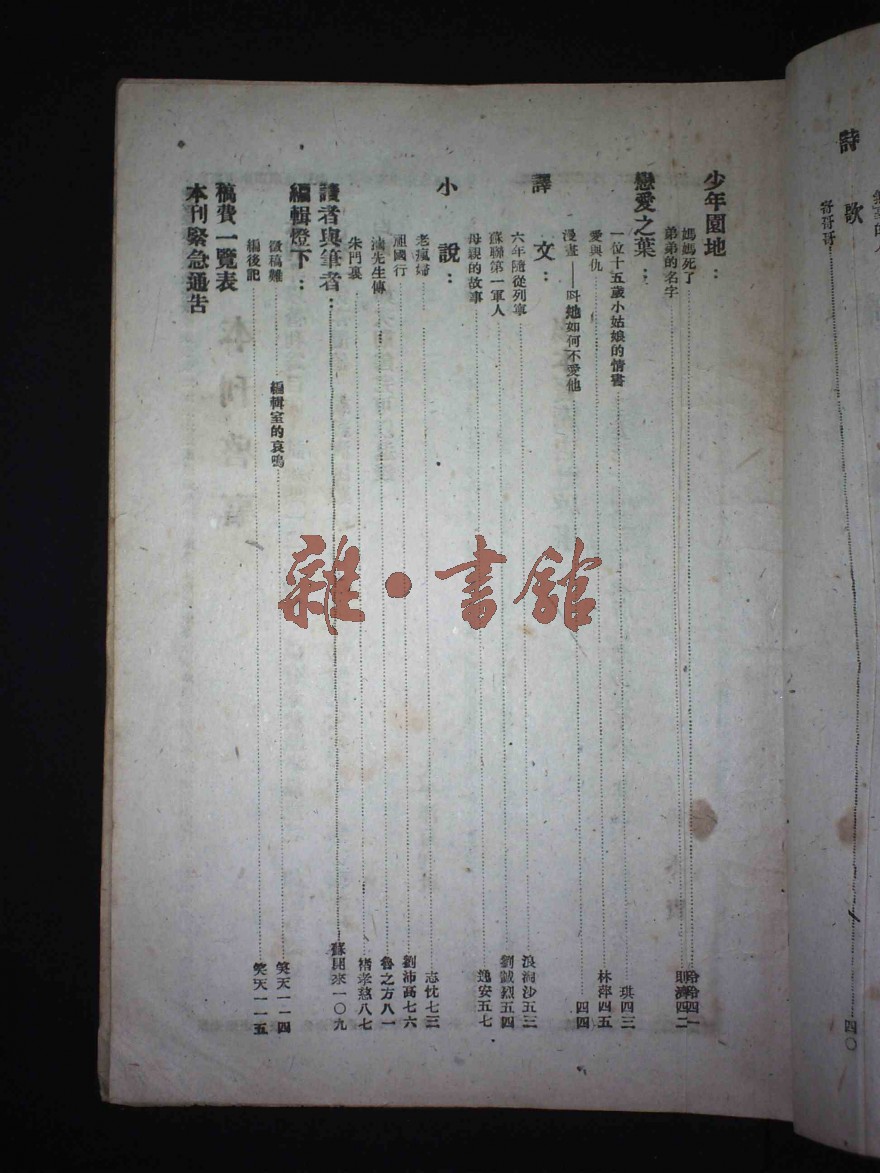 詩歌
哥哥哥……四〇
少年園地：
媽媽死了……哈哈四一
弟弟的名字……四二
戀愛之葉：
一位十五歲小姑娘的情書……琪四三
愛與仇……林萍四五
漫畫——叫她如何不愛他……四四
譯文：
六年隨從列寧……浪淘沙五三
蘇聯第一軍人……劉誠烈五四
母親的故事……逸安五七
小說：
老瘋婦……志忱七三
雁國行……劉沛高七六
先生傳……魯之方八一
朱門裏……褚孝慈八七
讀者與筆者：……蘇昆來一〇九
編輯燈下：
徵稿難……編輯室的哀鳴……笑天一一四
編後記……笑天一一五
稿費一覽表
本刊緊急通告
雜·書館